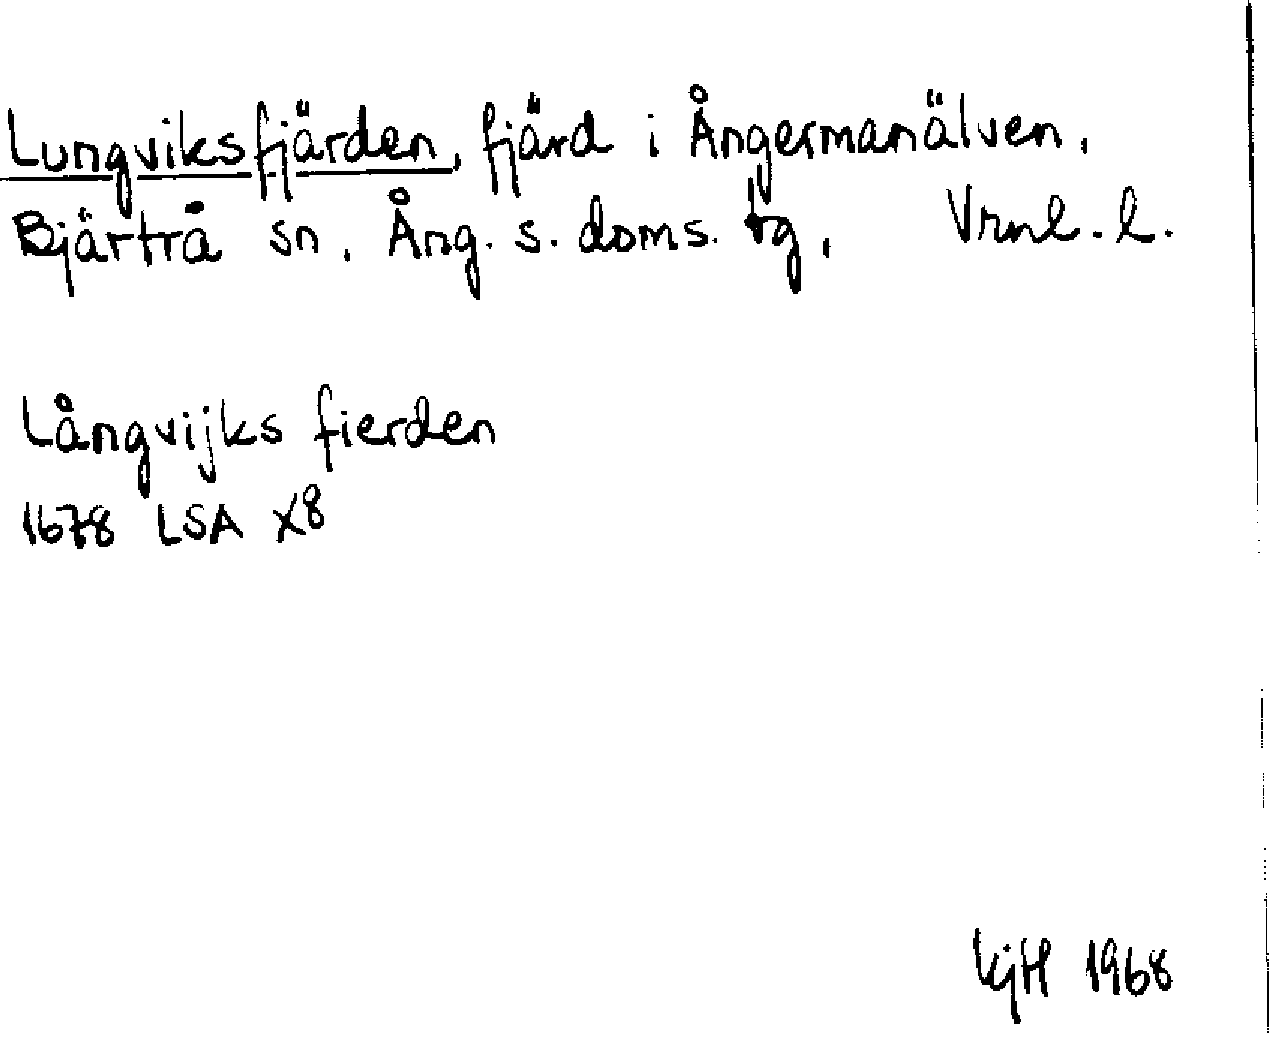 Lungviksfjärden, fjärd i Ångermanälven,
Bjärtrå sn, Ång. s. doms. tg, Vrnl. l.
Långvijks fierden
1678 LSA X8
KjH 1968